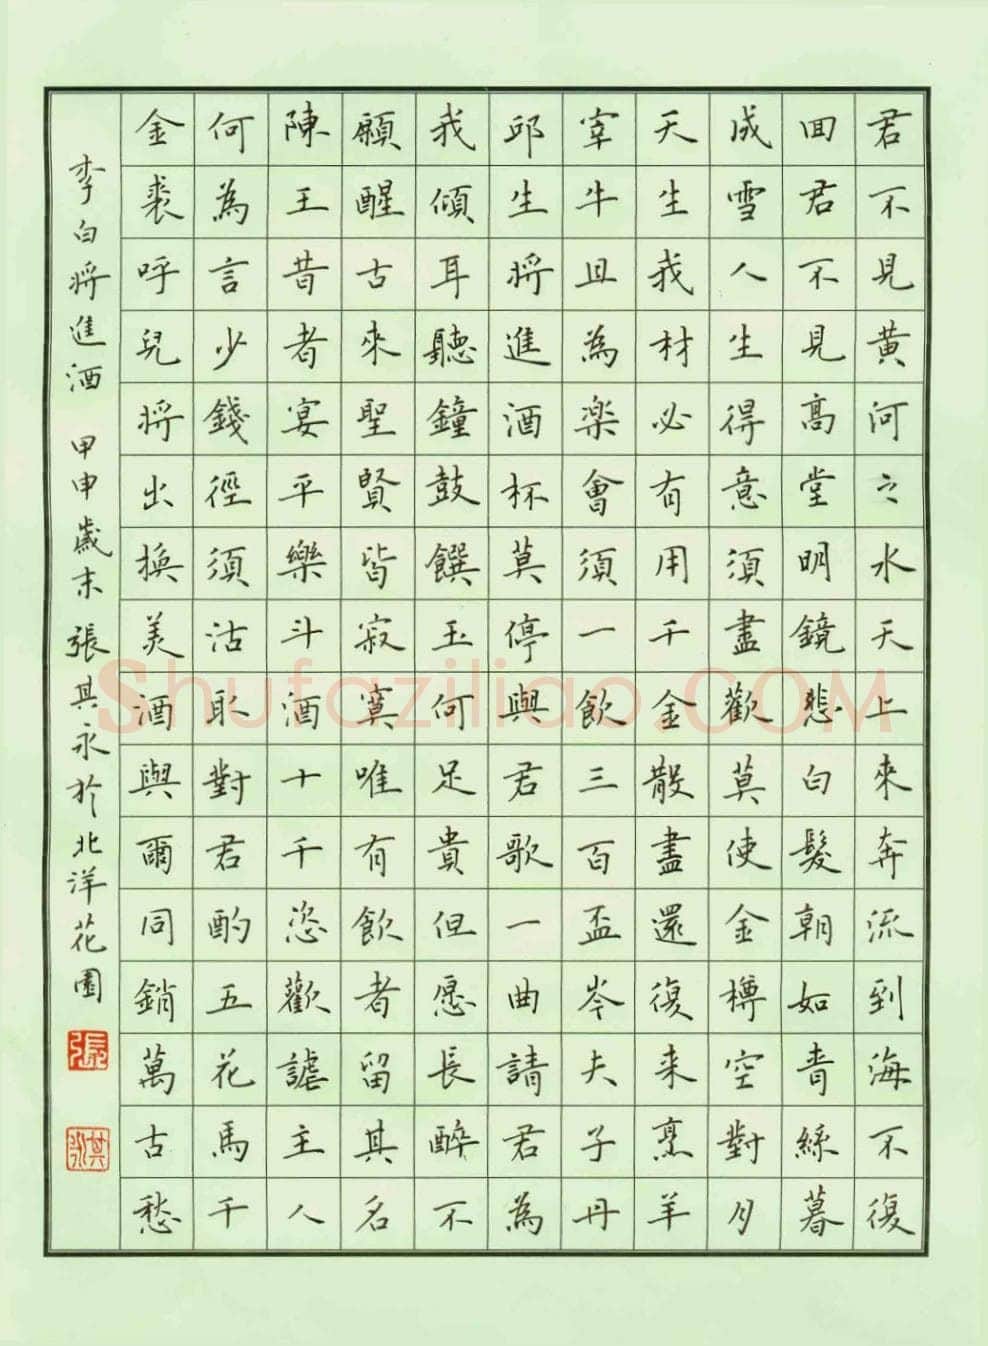 君不見黃河之水天上來奔流到海不復
回君不見高堂明鏡悲白髮朝如青絲暮
成雪人生得意須盡歡莫使金樽空對月
天生我材必有用千金散盡還復来烹羊
宰牛且為楽會須一飲三百盃岑夫子丹
邱生將進酒杯莫停與君歌一曲請君為
我傾耳聽鐘鼓饌玉何足貴但愿長醉不
願醒古來聖賢皆寂寞唯有飲者留其名
陳王昔者宴平樂斗酒十千恣歡謔主人
何為言少錢徑須沽取對君酌五花馬千
金裘呼兒将出換美酒與爾同銷萬古愁
李白將進酒 甲申歲末張其永於北洋花園
張
其永
Shufaziliao.COM